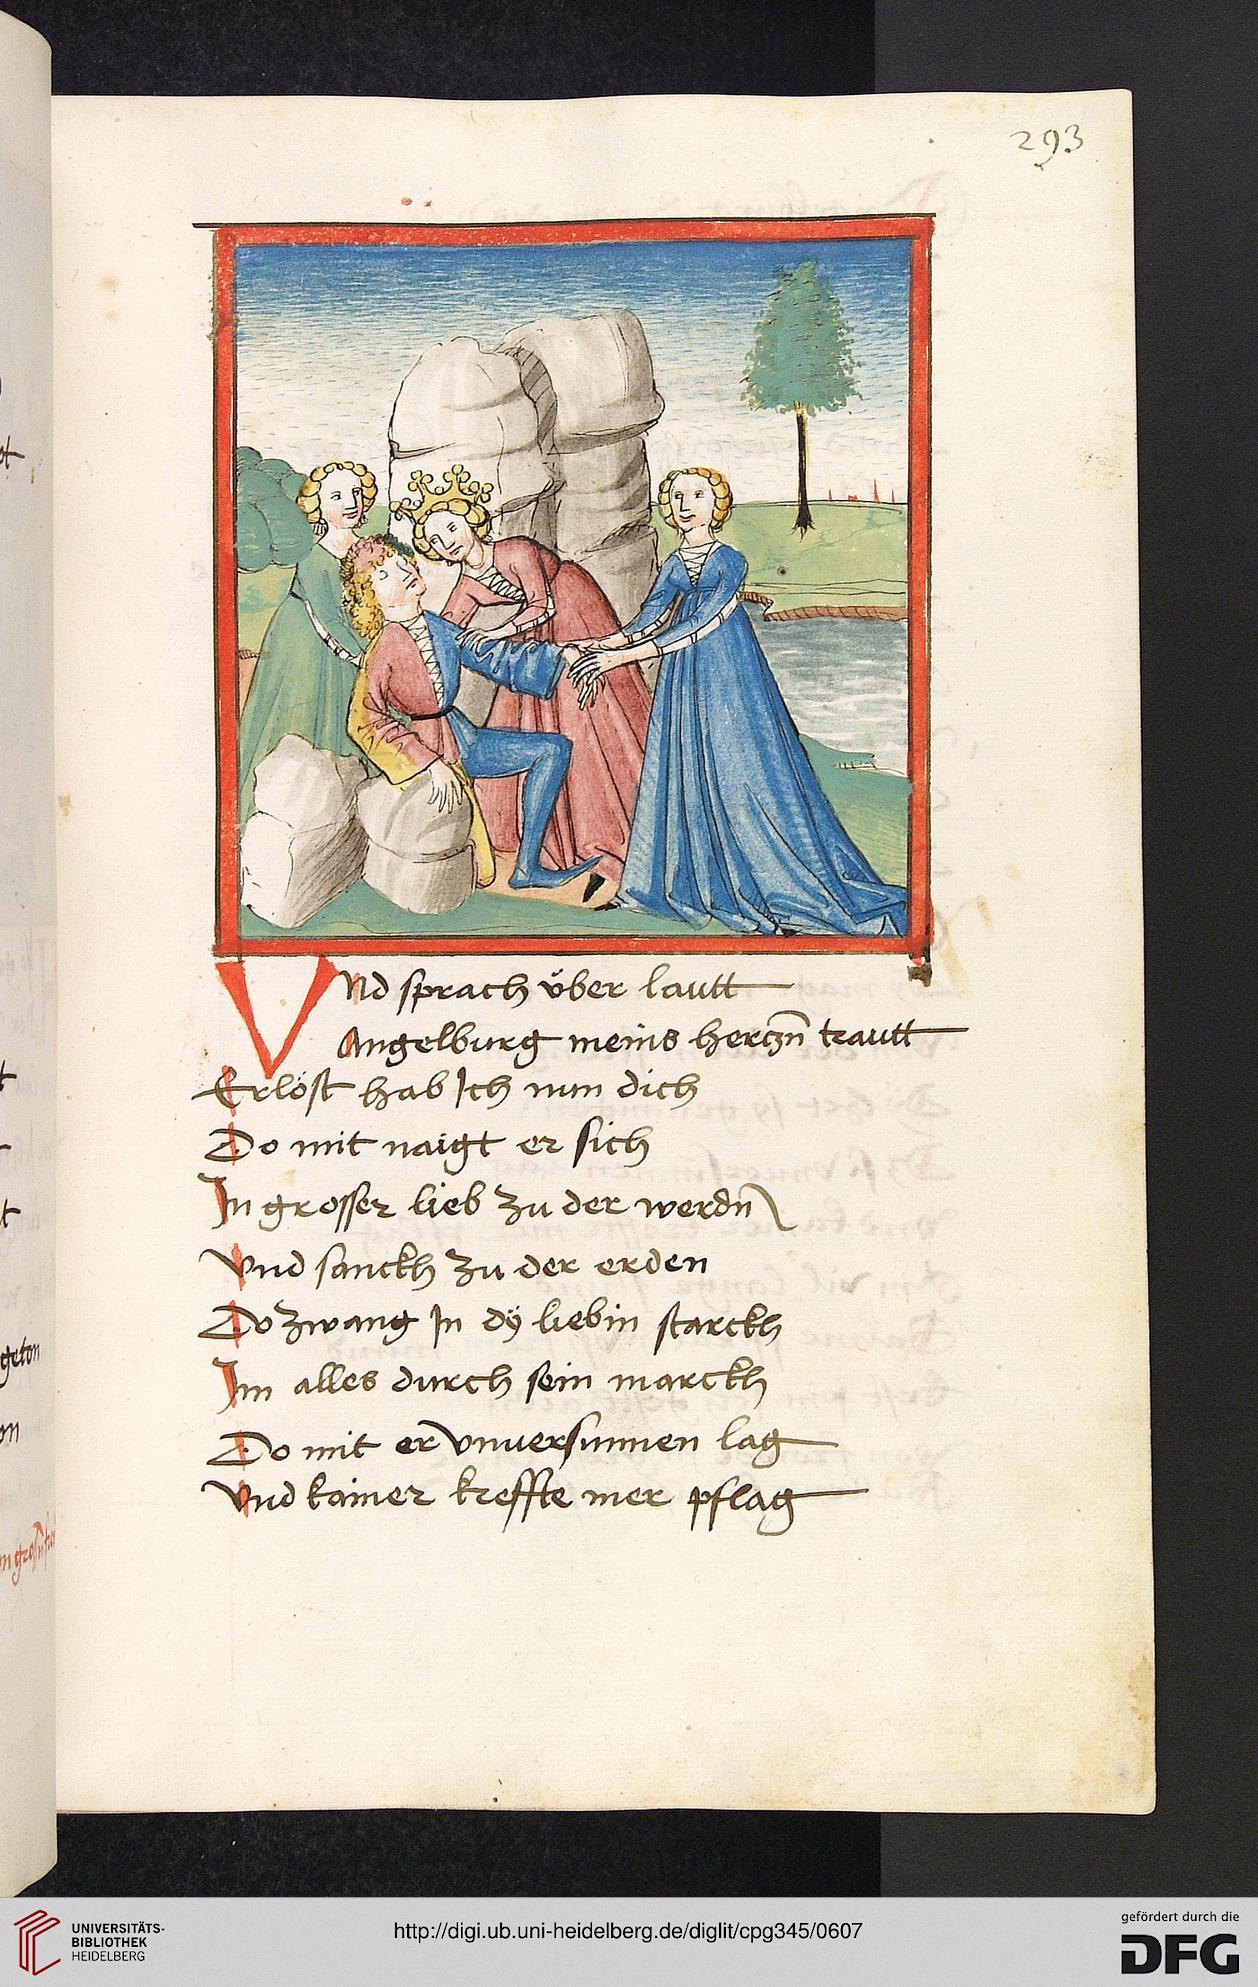 293
Vnd sprach über lautt
Angelburg meins herczn̄ trautt
Erlöst hab Ich nun dich
Do mit naigt er sich
In grosser lieb zu der werdn̄
Vnd sanckh zu der erden
Do zwang In dÿ liebin starckh
Im alles durch sein marckh
Do mit er vnuersunnen lag
Vnd kainer kreffte mer pflag
geton
UNIVERSITÄTS-
BIBLIOTHEK
HEIDELBERG
http://digi.ub.uni-heidelberg.de/diglit/cpg345/0607
gefördert durch die
DFG